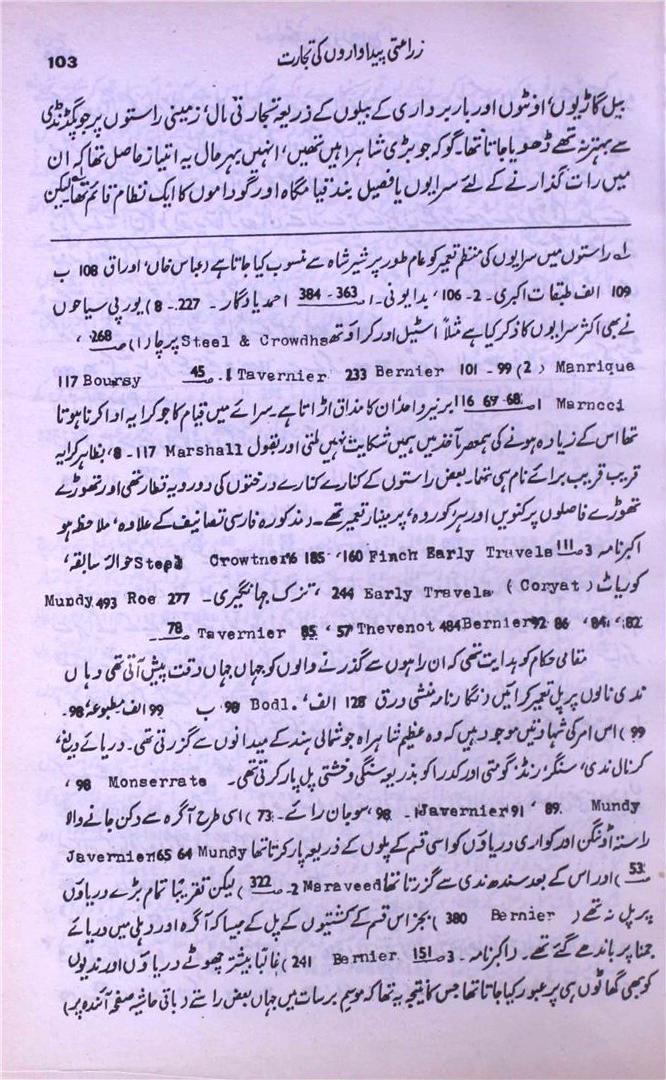 103
زراعتی پیداواروں کی تجارت
بیل گاڑیوں، اونٹوں اور باربرداری کے بیلوں کے ذریعہ تجارتی مال، زمینی راستوں پر جو پگڈنڈی
سے بہتر نہ تھے ڈھویا جاتا تھا۔ گو کہ جو بڑی شاہراہیں تھیں، انہیں بہر حال یہ امتیاز حاصل تھا کہ ان
میں رات گذارنے کے لئے سرایوں یا فصیل بند قیام گاہ اور گوداموں کا ایک نظام قائم تھا لیکن
لہ راستوں میں سرایوں کی منظم تعمیر کو عام طور پر شیر شاہ سے منسوب کیا جاتا ہے (عباس خاں، اوراق 108 ب
109 الف طبقات اکبری۔ 2۔ 106، بدایونی۔ 1 363 - 384 احمد یادگار۔ 227۔ 8) یورپی سیاحوں
نے بھی اکثر سرایوں کا ذکر کیا ہے مثلاً اسٹیل اور کراؤتھ Steel & Crowdhs پرچارا) 268،
Manrique (2) 99- 101 Bernier 233 Tavernier 1۔ 45 Bouray 117
Marncci 1 68- 67 116 برنیر واحد ان کا مذاق اڑاتا ہے۔ سرائے میں قیام کا جو کرایہ ادا کرنا ہوتا
تھا اس کے زیادہ ہونے کی ہمعصر مآخذ میں ہمیں شکایت نہیں ملتی اور بقول Marshall 117- 8، بظاہر کرایہ
قریب قریب برائے نام ہی تھا۔ بعض راستوں کے کنارے کنارے درختوں کی دورویہ قطار تھی اور تھوڑے
تھوڑے فاصلوں پر کنویں اور ہر کوروہ، پر مینار تعمیر تھے۔ (مذکورہ فارسی تصانیف کے علاوہ، ملاحظہ ہو
اکبرنامہ 3 111 Finch Early Travels 160، 185 Crowtner Steel حوالہ سابقہ،
کوریاٹ (Coryat) Early Travels 244، تزک جہانگیری۔ 277 Roe 493 Mundy
82، 84، 86 92 Bernier 484 Thevenot 57، 85 Tavernier 78
مقامی حکام کو ہدایت تھی کہ ان راہوں سے گذرنے والوں کو جہاں جہاں دقت پیش آتی تھی وہاں
ندی نالوں پر پل تعمیر کرائیں (نگارنامہ منشی ورق 128 الف، Bodl. 98 ب 99 الف مطبوعہ، 98۔
99) اس امر کی شہادتیں موجود ہیں کہ وہ عظیم شاہراہ جو شمالی ہند کے میدانوں سے گزرتی تھی۔ دریائے
کرنال ندی، سنگر، رند، گومتی اور کدرا کو بذریعہ سنگی و خشتی پل پار کرتی تھی۔ Monserrate 98،
Mundy 89، 91 Javernier 1۔ 98، سوجان رائے۔ 73) اسی طرح آگرہ سے دکن جانے والا
راستہ اوٹنگن اور کواری دریاؤں کو اسی قسم کے پلوں کے ذریعہ پار کرتا تھا Mundy 64 65 Javernier
53) اور اس کے بعد سندھ ندی سے گزرتا تھا Maraveed 2۔ 322) لیکن تقریباً تمام بڑے دریاؤں
پر پل نہ تھے (Bernier 380) بجز اس قسم کے کشتیوں کے پل کے جیسا کہ آگرہ اور دہلی میں دریائے
جمنا پر باندھے گئے تھے۔ (اکبرنامہ۔ 3 151 Bernier 241) غالباً بیشتر چھوٹے دریاؤں اور ندیوں
کو بھی گھاٹوں ہی پر عبور کیا جاتا تھا جس کا نتیجہ یہ تھا کہ موسم برسات میں جہاں بعض راستے (باقی حاشیہ صفحہ آئندہ پر)